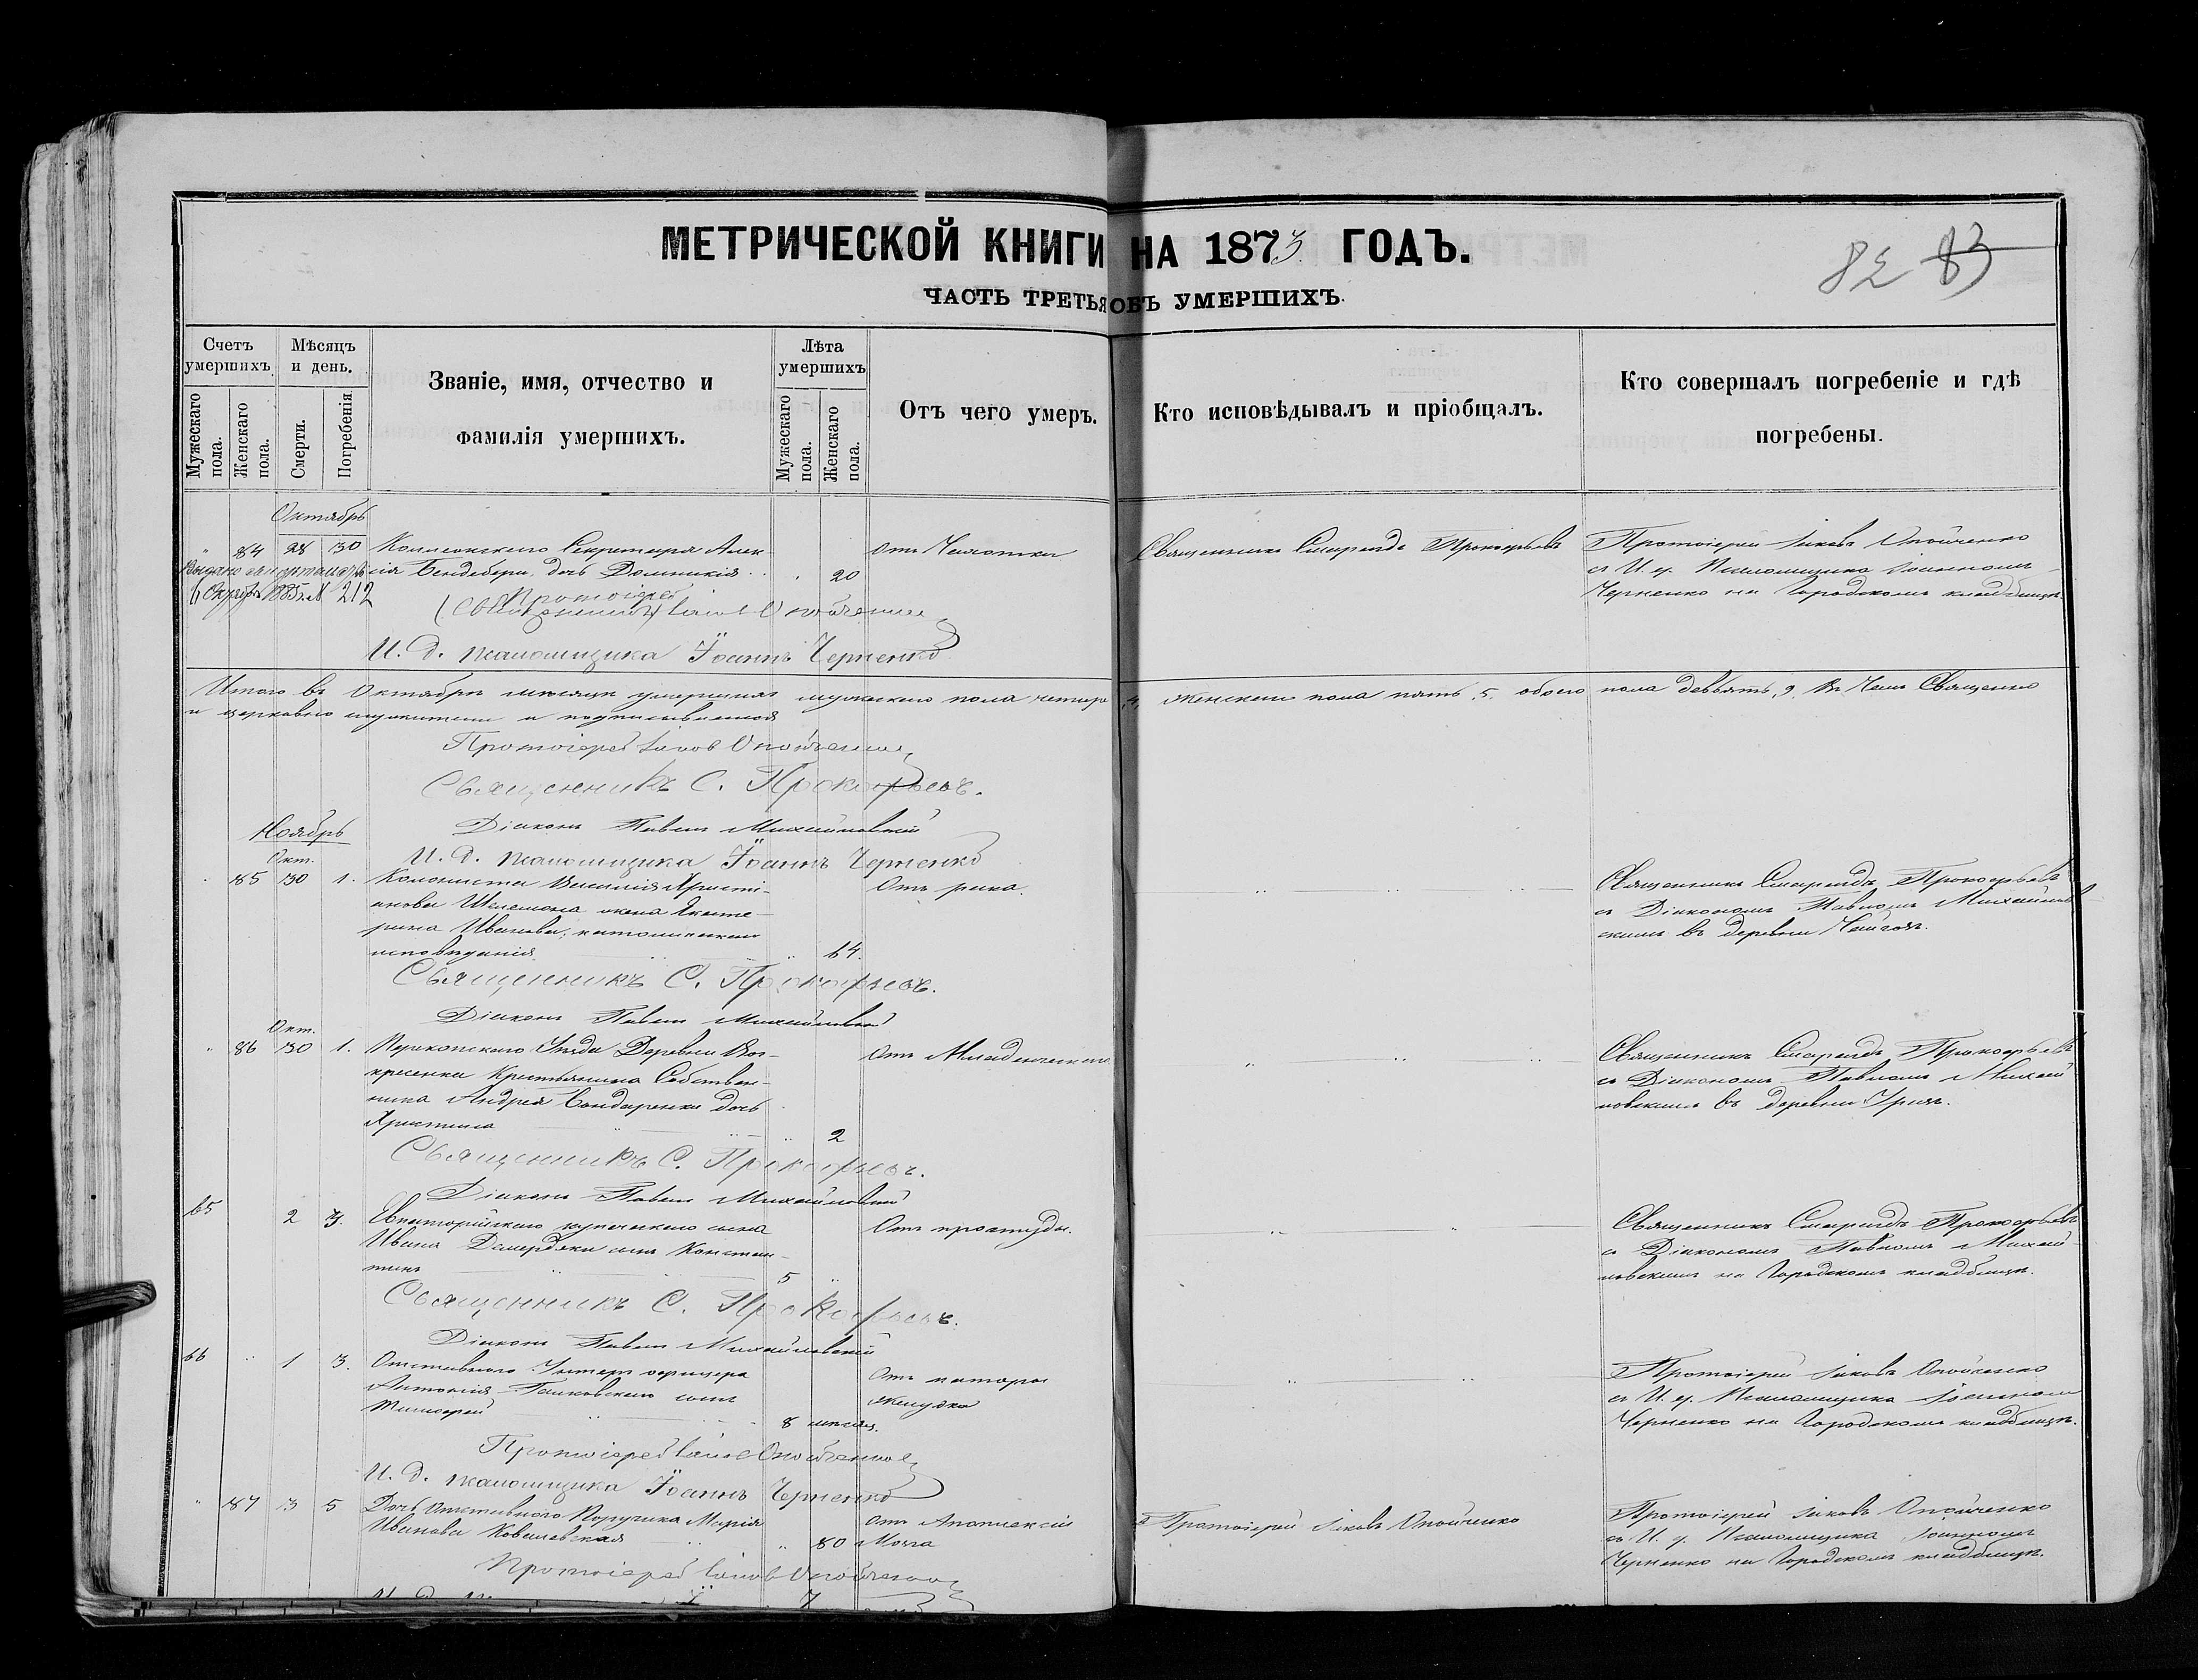 МЕТРИЧЕСКОЙ КНИГИ НА 1873 ГОДЪ.
82 83
ЧАСТЬ ТРЕТЬЯ ОБЪ УМЕРШИХЪ.
Счетъ умершихъ.
Мужескаго пола.
Женскаго пола.
Мѣсяцъ и день.
Смерти.
Погребенія.
Званіе, имя, отчество и
фамилія умершихъ.
Лѣта умершихъ
Мужескаго пола.
Женскаго пола.
Отъ чего умеръ.
Кто исповѣдывалъ и пріобщалъ.
Кто совершалъ погребеніе и гдѣ
погребены.
Октябрь
" 84 28 30 Коллежскаго Секретаря Алек-
сія Бендебери, дочь Домникія 20
Отъ Чахотки
Священникъ Спиридонъ Прокофьевъ
Протоіерей Іаковъ Опойченко
съ И. д. Псаломщика Іоанномъ
Черненко на Городскомъ кладбищѣ.
1885 № 212
Протоіерей
(Священникъ) Іаковъ Опойченко
И. д. псаломщика Іоаннъ Черненко
Итого въ Октябрѣ мѣсяцѣ умершихъ мужескаго пола четыре ,4, женскаго пола пять ,5, обоего пола девять ,9, въ чемъ Священно
и церковно служители и подписываемся
Протоіерей Іаковъ Опойченко
Священникъ С. Прокофьевъ.
Діаконъ Павелъ Михайловскій
И. д. псаломщика Іоаннъ Черненко
Ноябрь
Окт.
85 30 1. Колониста Василія Христі-
анова Шелемона жена Екате-
рина Иванова, католическаго
исповѣданія 64.
Отъ рака.
Священникъ Спиридонъ Прокофьевъ
съ Діакономъ Павломъ Михайлов
скимъ въ деревни
Священникъ С. Прокофьевъ.
Діаконъ Павелъ Михайловскій
Окт.
" 86 30 1. Перекопскаго Уѣзда Деревни Вос-
кресенки Крестьянина Собствен-
ника Андрея Бондаренки дочь
Христина 2
Отъ Младенческаго
Священникъ Спиридонъ Прокофьевъ
съ Діакономъ Павломъ Михай
ловскимъ въ деревни
Священникъ С. Прокофьевъ.
Діаконъ Павелъ Михайловскій
65 2 3. Евпаторійскаго купеческаго сына
Ивана сынъ Констан-
тинъ 5
Отъ простуды.
Священникъ Спиридонъ Прокофьевъ
съ Діакономъ Павломъ Михай-
ловскимъ на Городскомъ кладбищѣ.
Священникъ С. Прокофьевъ.
Діаконъ Павелъ Михайловскій
66 " 1 3. Отставного Унтеръ офицера
Антонія сынъ
Тимофей 8 мѣсяц.
Отъ катара
желудка
Протоіерей Іаковъ Опойченко
съ И. д. Псаломщика Іоанномъ
Черненко на Городскомъ кладбищѣ.
Протоіерей Іаковъ Опойченко
И. д. псаломщика Іоаннъ Черненко
" 87 3 5 Дочь Отставного Поручика Марія
Иванова Ковалевская 80
Отъ Апоплексіи
Мозга
Протоіерей Іаковъ Опойченко
Протоіерей Іаковъ Опойченко
съ И. д. Псаломщика Іоанномъ
Черненко на Городскомъ кладбищѣ.
Протоіерей Іаковъ Опойченко